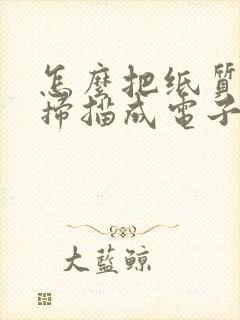 怎麼把纸質
掃描成電子
大藍鲸